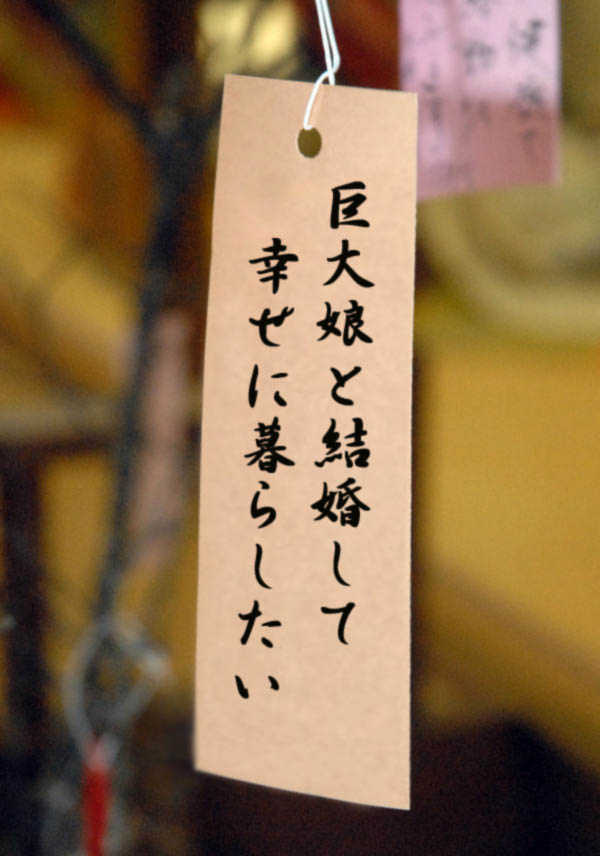 巨大娘と結婚して
幸せに暮らしたい